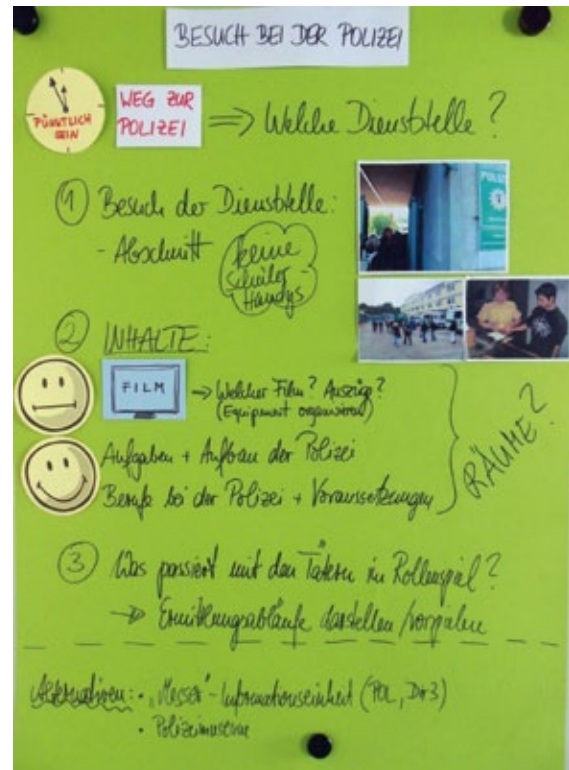 BESUCH BEI DER POLIZEI
PÜNKTLICH
SEIN
WEG ZUR
POLIZEI
=> Welche Dienststelle?
① Besuch der Dienststelle:
- Abschnitt
keine
Schüler
Handys
POLIZ
② INHALTE:
FILM
→ Welcher Film? Auszüge?
(Equipment organisieren)
Aufgaben + Aufbau der Polizei
Berufe bei der Polizei + Voraussetzungen
RÄUME?
③ Was passiert mit den Tätern im Rollenspiel?
→ Ermittlungsabläufe darstellen/vorspielen
Alternativen: • „Messer"-Informationseinheit (POL, Dir3)
• Polizeimuseum